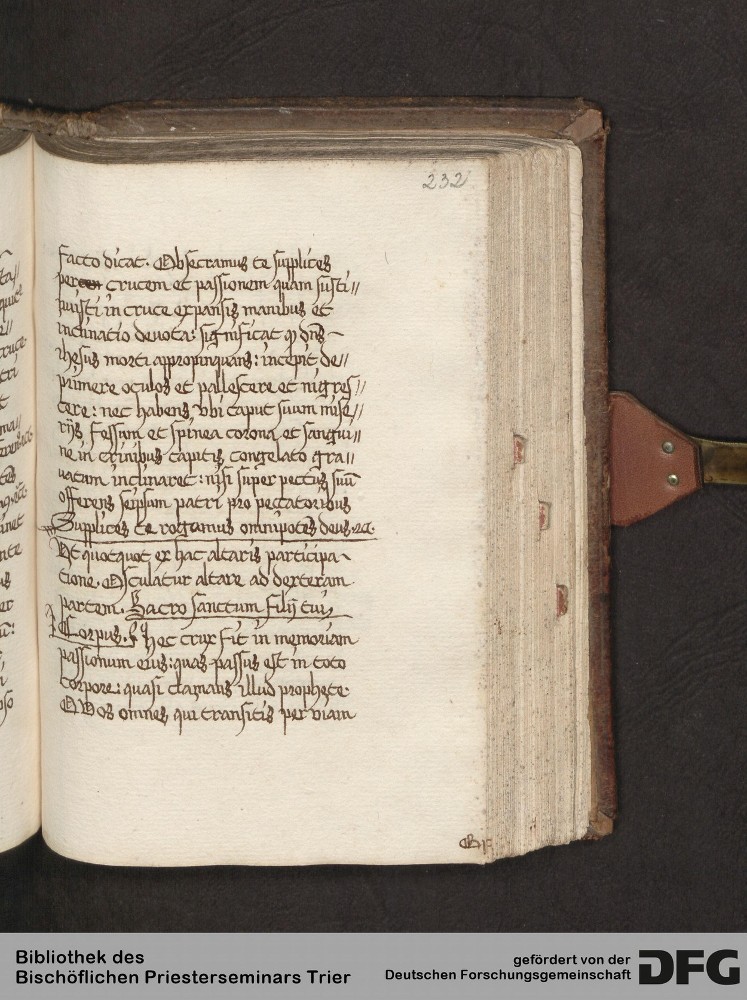 232
facto dicat. Obsecramus te supplices
per crucem et passionem quam susti//
nuisti in cruce expansis manibus et
inclinatio deuota: significat ꝙ dn̄s
ihesus morti appropinquans: incepit de//
primere oculos et pallescere et nigres//
cere: nec habens vbi caput suum mise//
riis fessum et spinea corona et sangui//
ne in crinibus capitis congelato gra//
uatum inclinaret: nisi super pectus suū
offerens seipsum patri pro peccatoribus
Supplices te rogamus omnipotēs deus.
Vt quotquot ex hac altaris participa
tione. Osculatur altare ad dexteram
partem. Sacro sanctum filij tui
Corpus. Hec crux fit in memoriam
passionum eius: quas passus est in toto
corpore: quasi clamans illud prophete
O vos omnes qui transitis per viam
Bibliothek des
Bischöflichen Priesterseminars Trier
gefördert von der
Deutschen Forschungsgemeinschaft
DFG